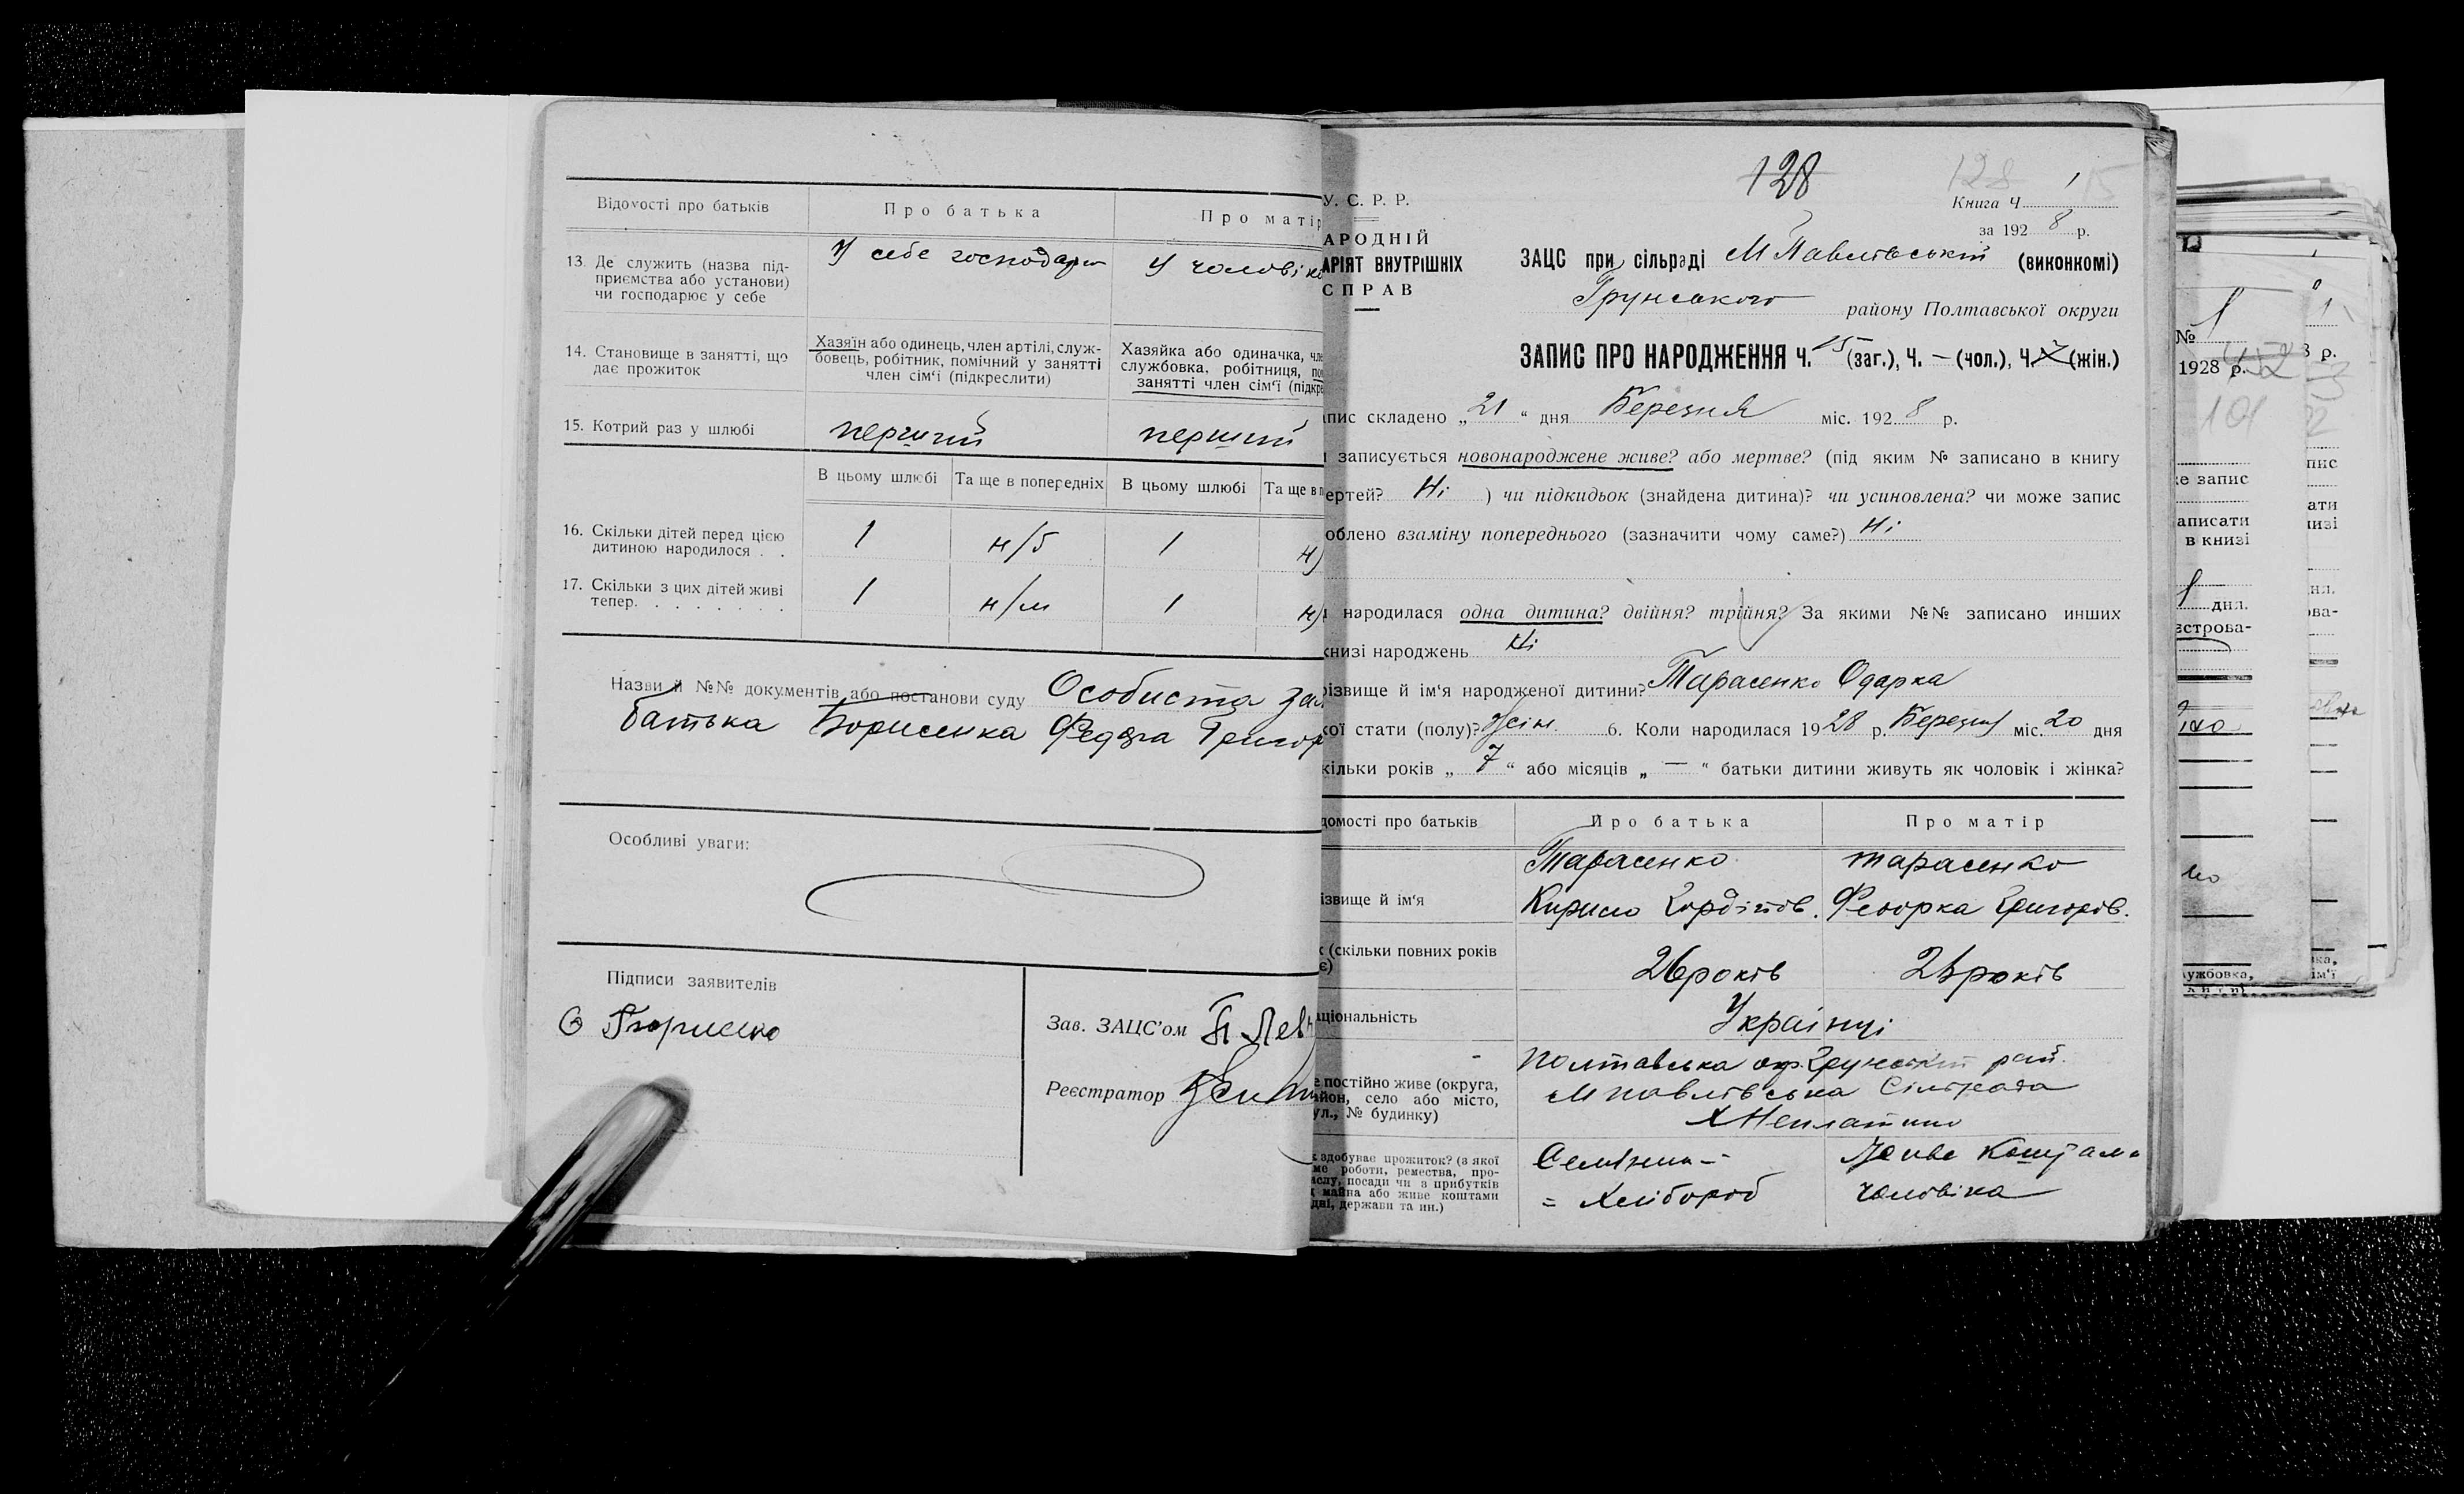 Відомості про батьків
Про батька
Про матір
13. Де служить (назва під-
приємства або установи)
чи господарює у себе
У себе господар
У чоловіка
14. Становище в занятті, що
дає прожиток
Хазяїн або одинець, член артілі, служ-
бовець, робітник, помічний у занятті
член сім'ї (підкреслити)
Хазяйка або одиначка, чле
службовка, робітниця, по
занятті член сім'ї (підкре
15. Котрий раз у шлюбі
перший
перший
В цьому шлюбі
Та ще в попередніх
В цьому шлюбі
Та ще в п
16. Скільки дітей перед цією
дитиною народилося . .
1
н/б
1
н/
17. Скільки з цих дітей живі
тепер. . . . . . . .
1
н/м
1
н/
Назви й №№ документів або постанови суду Особиста зая
батька Борисенка Федора Григор
Особливі уваги:
Підписи заявителів
Зав. ЗАЦС'ом
Реєстратор
128
128
1
15
У. С. Р. Р.
АРОДНІЙ
АРІЯТ ВНУТРІШНІХ
СПРАВ
Книга Ч
за 1928 р.
ЗАЦС при сільраді М Павлівський (виконкомі)
Грунського району Полтавської округи
ЗАПИС ПРО НАРОДЖЕННЯ Ч. 15 (заг.), Ч. — (чол.), Ч. 7 (жін.)
пис складено „ 21 “ дня Березня міс. 1928 р.
записується новонароджене живе? або мертве? (під яким № записано в книгу
ертей? Ні ) чи підкидьок (знайдена дитина)? чи усиновлена? чи може запис
облено взаміну попереднього (зазначити чому саме?) Ні
народилася одна дитина? двійня? трійня? За якими №№ записано инших
книзі народжень Ні
різвище й ім'я народженої дитини? Тарасенко Одарка
кої стати (полу)? Жін. 6. Коли народилася 1928 р. Березня міс. 20 дня
кільки років „ 7 “ або місяців „ — “ батьки дитини живуть як чоловік і жінка?
домості про батьків
Про батька
Про матір
ізвище й ім'я
Тарасенко
Кирило Гордіїов.
Тарасенко
Федорка Григоров.
к (скільки повних років
є)
26 років
25 років
аціональність
Українці
е постійно живе (округа,
айон, село або місто,
ул., № будинку)
Полтавська окр. Грунський рай.
М Павлівська Сільрада
к здобуває прожиток? (з якої
ме роботи, ремества, про-
ислу, посади чи з прибутків
майна або живе коштами
дні, держави та ин.)
Селянин -
= Хлібороб
Живе коштами
чоловіка
№ 1
1928 р.
101
3 р.
пис
е запис
ати
аписати
изі
в книзі
дня.
встрова-
ужбовка,
ім'ї